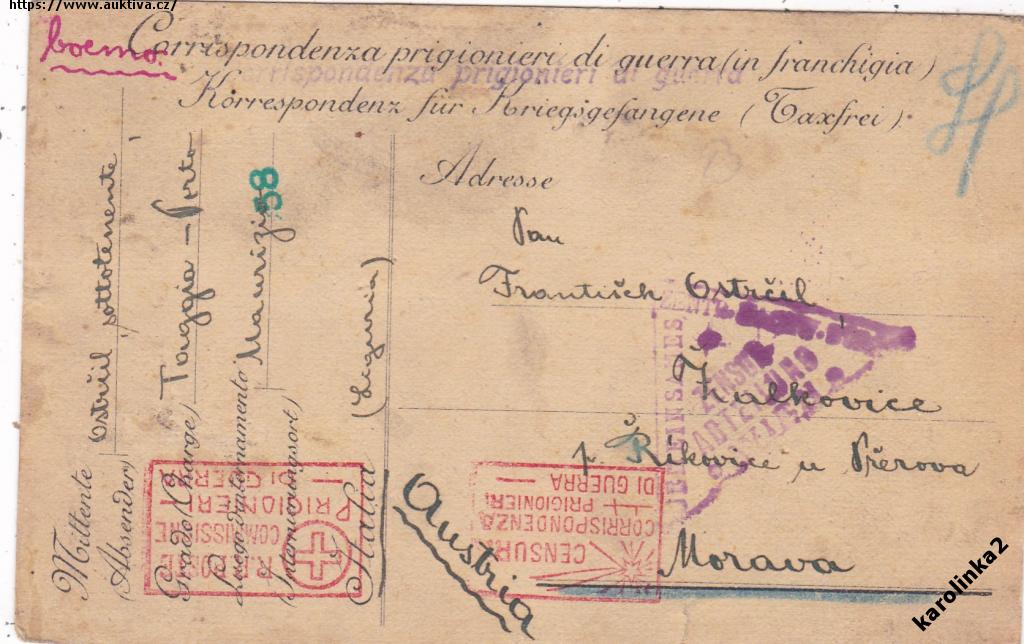 https://www.auktiva.cz/
boemo
Corrispondenza prigionieri di guerra (in franchigia)
Corrispondenza prigionieri di guerra
Korrespondenz für Kriegsgefangene (Taxfrei)
Adresse
Pan
František Ostrčil
Žalkovice
p. Říkovice u Přerova
Morava
Austria
Mittente
(Absender)
Ostrčil, sottotenente
Grado (Charge)
Taggia - Porto
Luogo d'internamento
(Internierungsort)
Maurizio
58
Italia
(Liguria)
COMMISSIONE
PRIGIONIERI
DI GUERRA
CENSURA
CORRISPONDENZA
PRIGIONIERI
DI GUERRA
GEMEINSAMES
ZENSUR
ABTEILUNG
karolinka2